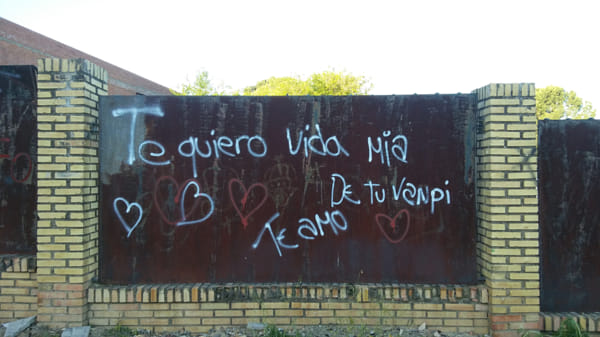 Te quiero vida mia
De tu vampi
Te amo